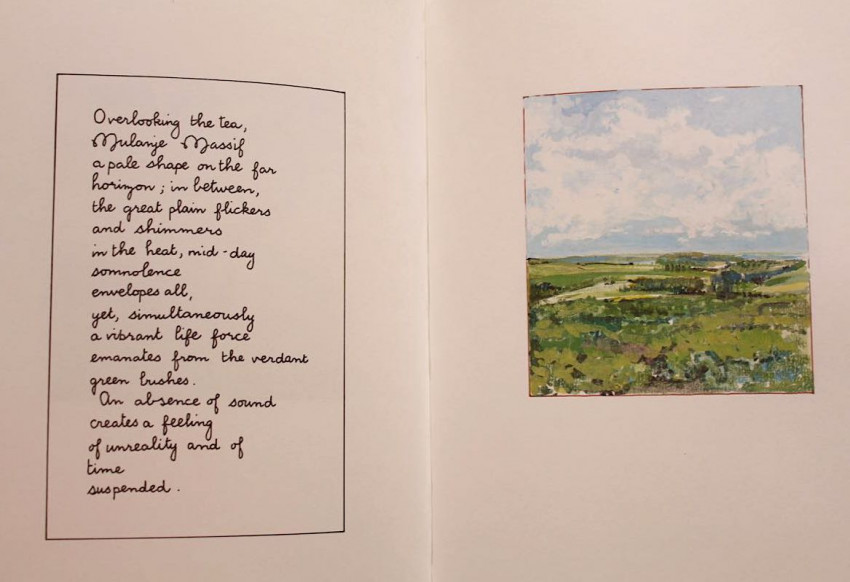 Overlooking the tea,
Mulanje Massif
a pale shape on the far
horizon ; in between,
the great plain flickers
and shimmers
in the heat, mid-day
somnolence
envelopes all,
yet, simultaneously
a vibrant life force
emanates from the verdant
green bushes.
An absence of sound
creates a feeling
of unreality and of
time
suspended.